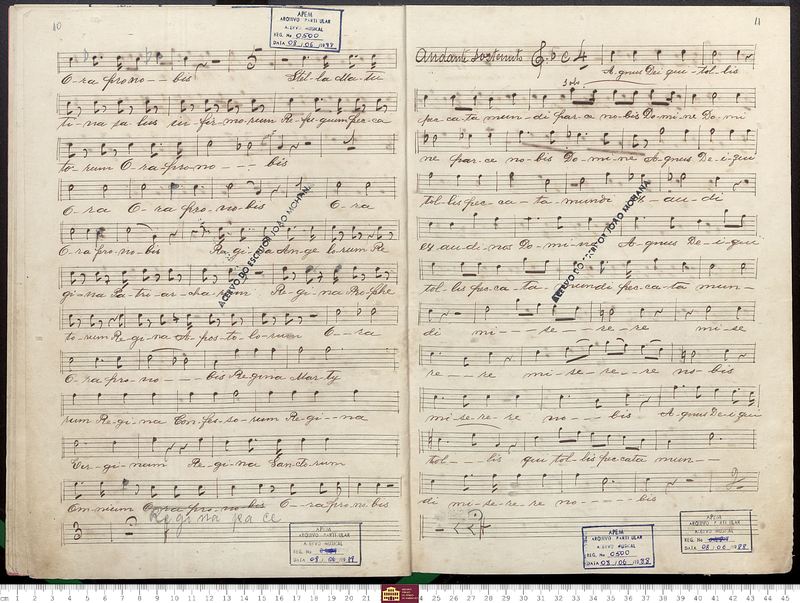 10
APEM
ARQUIVO PARTICULAR
ACERVO MUSICAL
REG. No 0500
DATA 08 / 06 / 1998
O-ra pro no - - bis Stel-la Ma-tu
ti-na sa-lus in-fir-mo-rum Re-fu-gium pec-ca
to-rum O-ra-pro-no - - - bis
O-ra O-ra pro-no-bis O-ra
O-ra-pro-no-bis Re-gi-na An-ge-lo-rum Re
gi-na Pa-tri-ar-cha-rum Re-gi-na Pro-phe
to-rum Re-gi-na A-pos-to-lo-rum O--ra
O-ra pro-no - - - bis Regina Mar-ty
rum Re-gi-na Con-fes-so-rum Re-gi--na
Vir-gi-num Re-gi-na Sanc-to-rum
Om-nium O-ra-pro-no-bis O-ra pro no bis
Regina pa ce
ACERVO DO ESCRITOR JOÃO MOHANA
APEM
ARQUIVO PARTICULAR
ACERVO MUSICAL
11
Andante sostenuto C 4
A-gnus Dei qui-tol-lis
Solo
pec-ca-ta mun--di par-ce no-bis Do-mi-ne Do-mi
ne par-ce no-bis Do-mi-ne A-gnus De-i qui
tol-lis pec-ca-ta-mundi au-di
Ex au-di-nos Do-mi-ne A-gnus De-i-qui
tol-lis pec-ca-ta mundi pec-ca-ta mun--
di mi---se--re-re mi-se
re---re mi-se-re--re no-bis
mi-se-re-re no---bis A-gnus De-i-qui
tol---lis qui tol-lis pec-cata mun--
di mi-se-re-re no-----bis
ACERVO DO ESCRITOR JOÃO MOHANA
APEM
ARQUIVO PARTICULAR
ACERVO MUSICAL
REG. No 0500
DATA 08 / 06 / 1998
APEM
ARQUIVO PARTICULAR
ACERVO MUSICAL